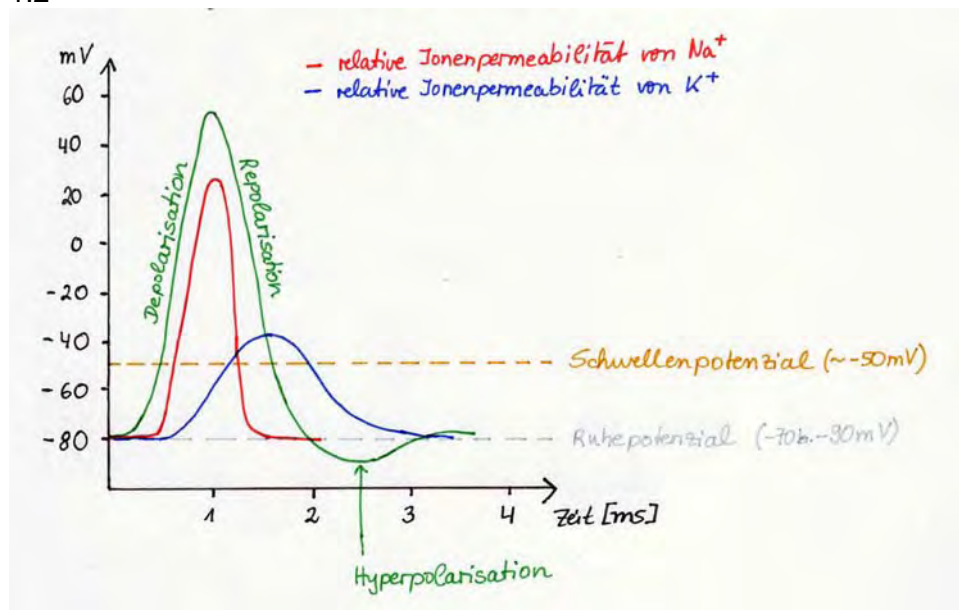 mV
– relative Ionenpermeabilität von Na⁺
– relative Ionenpermeabilität von K⁺
60
40
20
0
-20
-40
-60
-80
Depolarisation
Repolarisation
Schwellenpotenzial (~-50mV)
Ruhepotenzial (-70b.-90mV)
1
2
3
4
Zeit [ms]
Hyperpolarisation